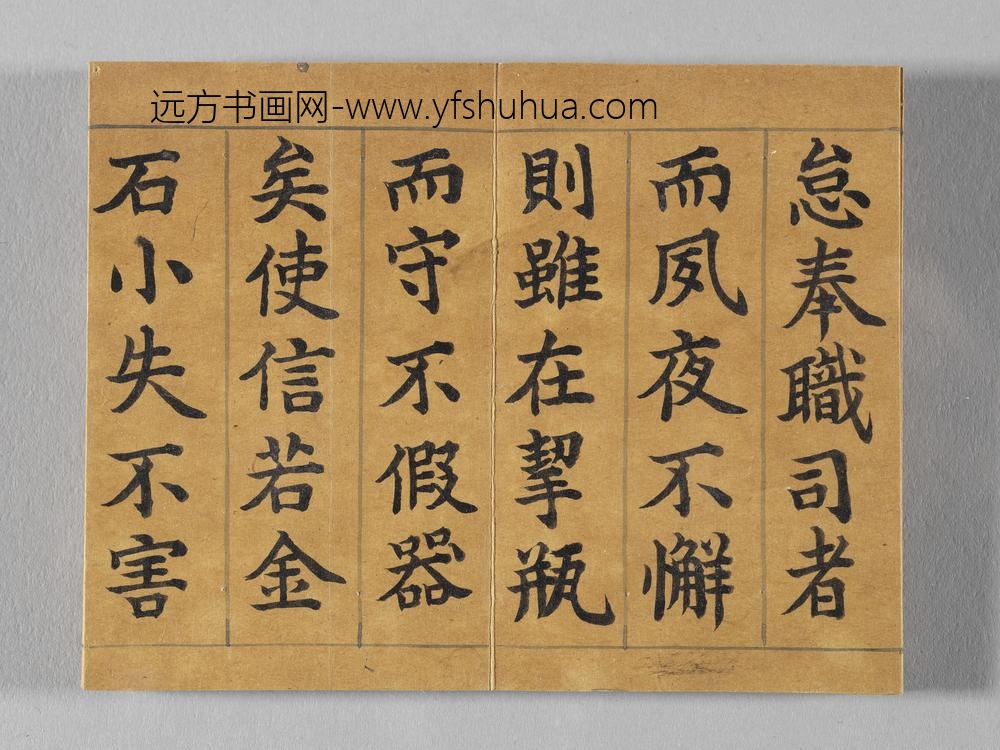 远方书画网-www.yfshuhua.com
怠奉職司者
而夙夜不懈
則雖在挈瓶
而守不假器
矣使信若金
石小失不害